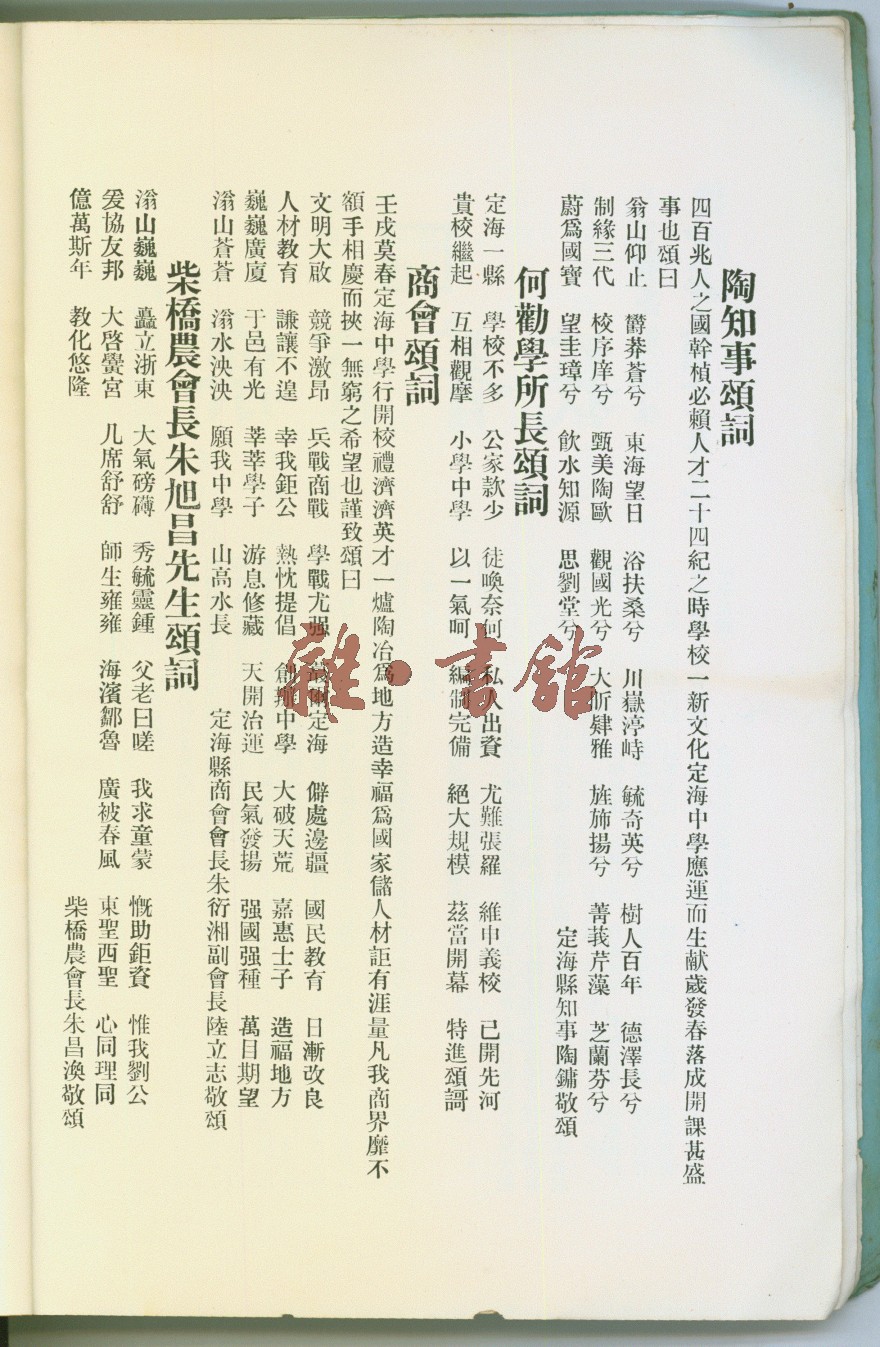 陶知事頌詞
四百兆人之國幹楨必賴人才二十四紀之時學校一新文化定海中學應運而生献歲發春落成開課甚盛
事也頌曰
翁山仰止 欝莽蒼兮 東海望日 浴扶桑兮 川嶽渟峙 毓奇英兮 樹人百年 德澤長兮
制緣三代 校序庠兮 甄美陶歐 觀國光兮 大昕肄雅 旌斾揚兮 菁莪芹藻 芝蘭芬兮
蔚爲國寶 望圭璋兮 飲水知源 思劉堂兮 定海縣知事陶鏞敬頌
何勸學所長頌詞
定海一縣 學校不多 公家款少 徒喚奈何 私人出資 尤難張羅 維申義校 已開先河
貴校繼起 互相觀摩 小學中學 以一氣呵 編制完備 絕大規模 茲當開幕 特進頌謌
商會頌詞
壬戌莫春定海中學行開校禮濟濟英才一爐陶冶爲地方造幸福爲國家儲人材詎有涯量凡我商界靡不
額手相慶而挾一無窮之希望也謹致頌曰
文明大啟 競爭激昂 兵戰商戰 學戰尤强 蕞爾定海 僻處邊疆 國民教育 日漸改良
人材教育 謙讓不遑 幸我鉅公 熱忱提倡 創辦中學 大破天荒 嘉惠士子 造福地方
巍巍廣廈 于邑有光 莘莘學子 游息修藏 天開治運 民氣發揚 强國强種 萬目期望
滃山蒼蒼 滃水泱泱 願我中學 山高水長 定海縣商會會長朱衍湘副會長陸立志敬頌
柴橋農會長朱旭昌先生頌詞
滃山巍巍 矗立浙東 大氣磅礴 秀毓靈鍾 父老曰嗟 我求童蒙 慨助鉅資 惟我劉公
爰協友邦 大啓黌宮 几席舒舒 師生雍雍 海濱鄒魯 廣被春風 東聖西聖 心同理同
億萬斯年 教化悠隆 柴橋農會長朱昌渙敬頌
雜·書館